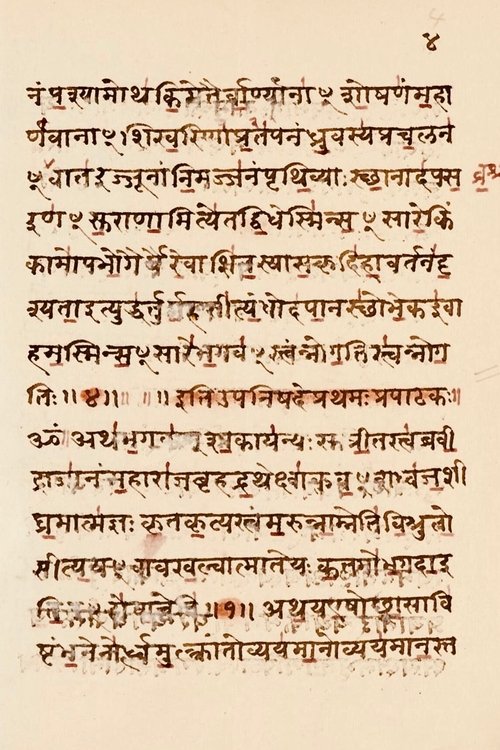 ४
नं पश्यामोथ किमेतैर्वाण्यानाꣳ शोषणं महा
र्णवानाꣳ शिखरिणां प्रतपनं ध्रुवस्य प्रचलनं
ꣳ वातरज्जूनां निमज्जनं पृथिव्याः स्थानादपस
रणꣳ सुराणामित्येतद्विधेस्मिन्सꣳसारे किं
कामोपभोगैर्यैरेवाशितस्यासकृदिहावर्तनं दृ
श्यता इत्युद्धर्तुमर्हसीत्यंधोदपानस्थो भेक इवा
हमस्मिन्सꣳसारे भगवꣳस्त्वंन्नो गतिस्त्वंन्नो ग
तिः ॥ ४ ॥ ॥ इति उपनिषदे प्रथमः प्रपाठकः ॥
ॐ अथ भगवान् शाकायन्यः सुप्रीतस्त्वब्रवी
द्राजानं महाराज बृहद्रथेक्ष्वाकुवꣳशध्वज शी
घ्रमात्मज्ञः कृतकृत्यस्त्वं मरुन्नाम्नेति विश्रुतो
सीत्ययꣳ वाव खल्वात्मा ते यः कतमो भगवा इ
ति तꣳ होवाचेति ॥ १ ॥ अथ य एषोच्छ्वासावि
ष्टंभनेनोर्ध्वमुत्क्रांतो व्ययमानोव्ययमानस्त